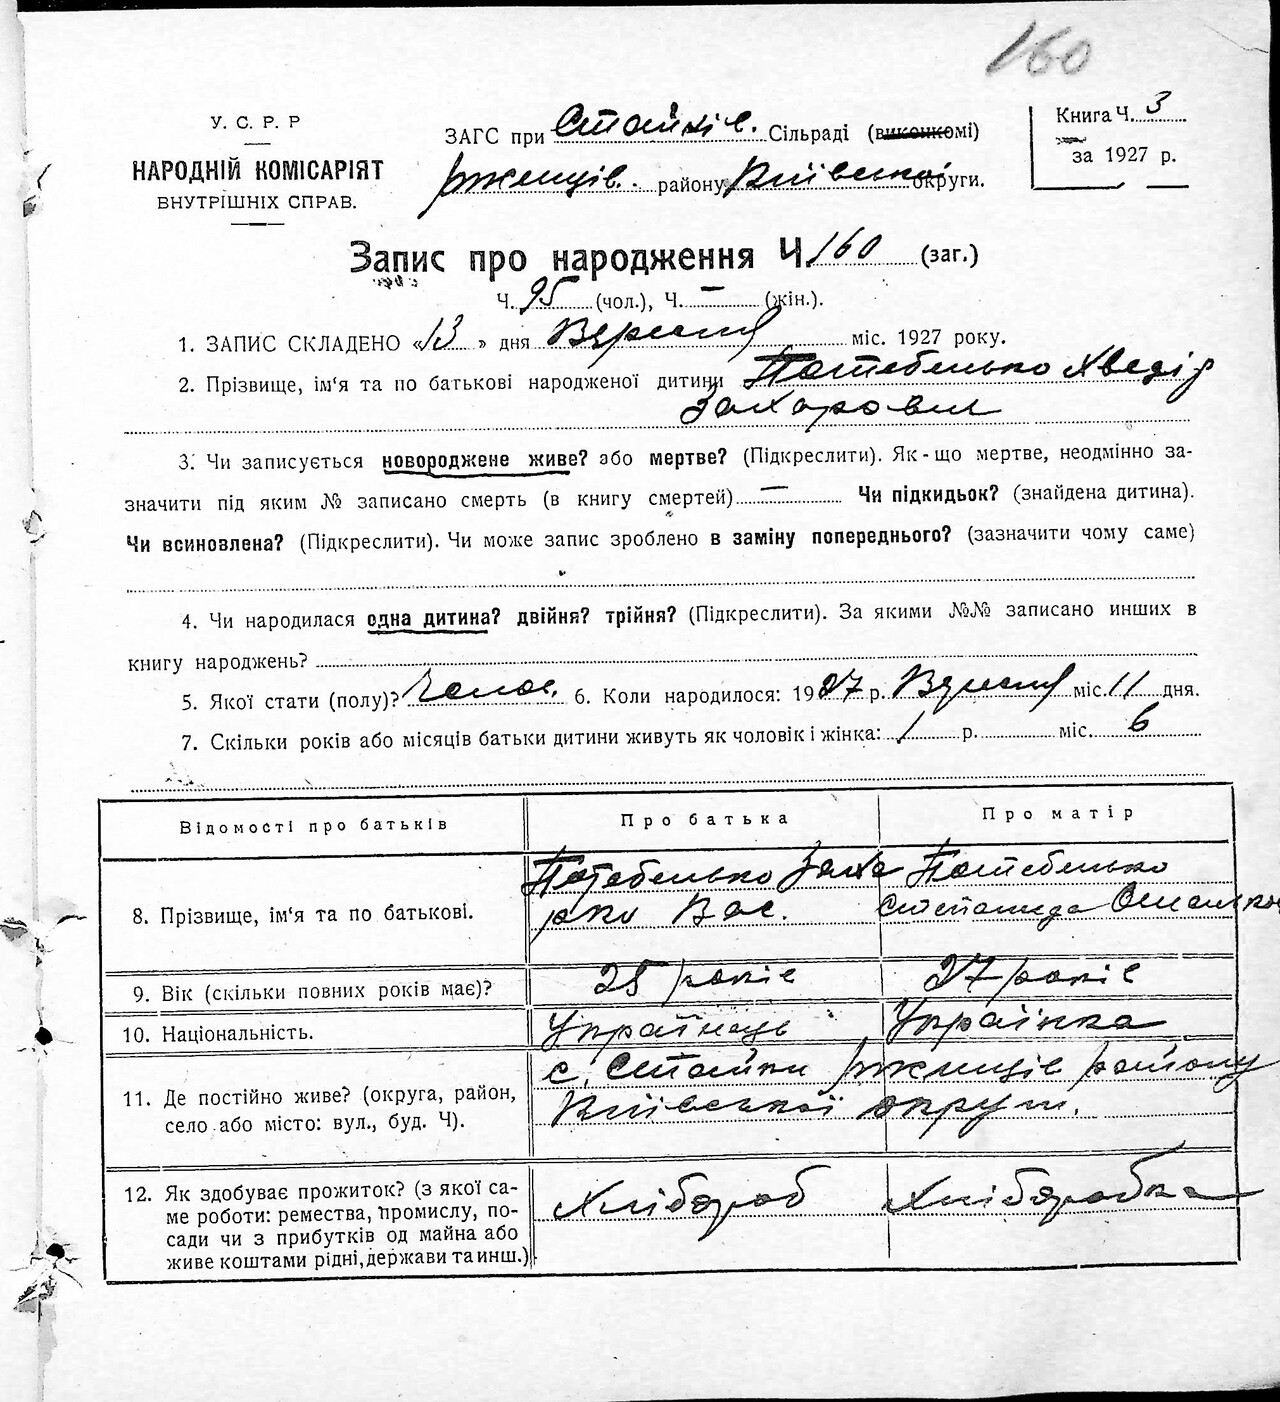 160
У. С. Р. Р
НАРОДНІЙ КОМІСАРІЯТ
ВНУТРІШНІХ СПРАВ.
ЗАГС при Стайків. Сільраді (виконкомі)
Ржищів. району Київської округи.
Книга Ч. 3
за 1927 р.
Запис про народження Ч. 160 (заг.)
Ч. 95 (чол.), Ч. — (жін.).
1. ЗАПИС СКЛАДЕНО «13» дня Вересня міс. 1927 року.
2. Прізвище, ім'я та по батькові народженої дитини Потебенько Хведір
Захарович
3. Чи записується новороджене живе? або мертве? (Підкреслити). Як-що мертве, неодмінно за-
значити під яким № записано смерть (в книгу смертей) — Чи підкидьок? (знайдена дитина).
Чи всиновлена? (Підкреслити). Чи може запис зроблено в заміну попереднього? (зазначити чому саме)
4. Чи народилася одна дитина? двійня? трійня? (Підкреслити). За якими №№ записано инших в
книгу народжень?
5. Якої стати (полу)? Чолов. 6. Коли народилося: 1927 р. Вересня міс. 11 дня.
7. Скільки років або місяців батьки дитини живуть як чоловік і жінка: 1 р. міс. 6
Відомості про батьків
Про батька
Про матір
8. Прізвище, ім'я та по батькові.
Потебенько Заха
рко Вас.
Потебенько
Степанида
9. Вік (скільки повних років має)?
25 років
27 років
10. Національність.
Українець
Українка
11. Де постійно живе? (округа, район,
село або місто: вул., буд. Ч).
с. Стайки Ржищів району
Київської округи.
12. Як здобуває прожиток? (з якої са-
ме роботи: ремества, промислу, по-
сади чи з прибутків од майна або
живе коштами рідні, держави та инш.)
Хлібороб
Хліборобка